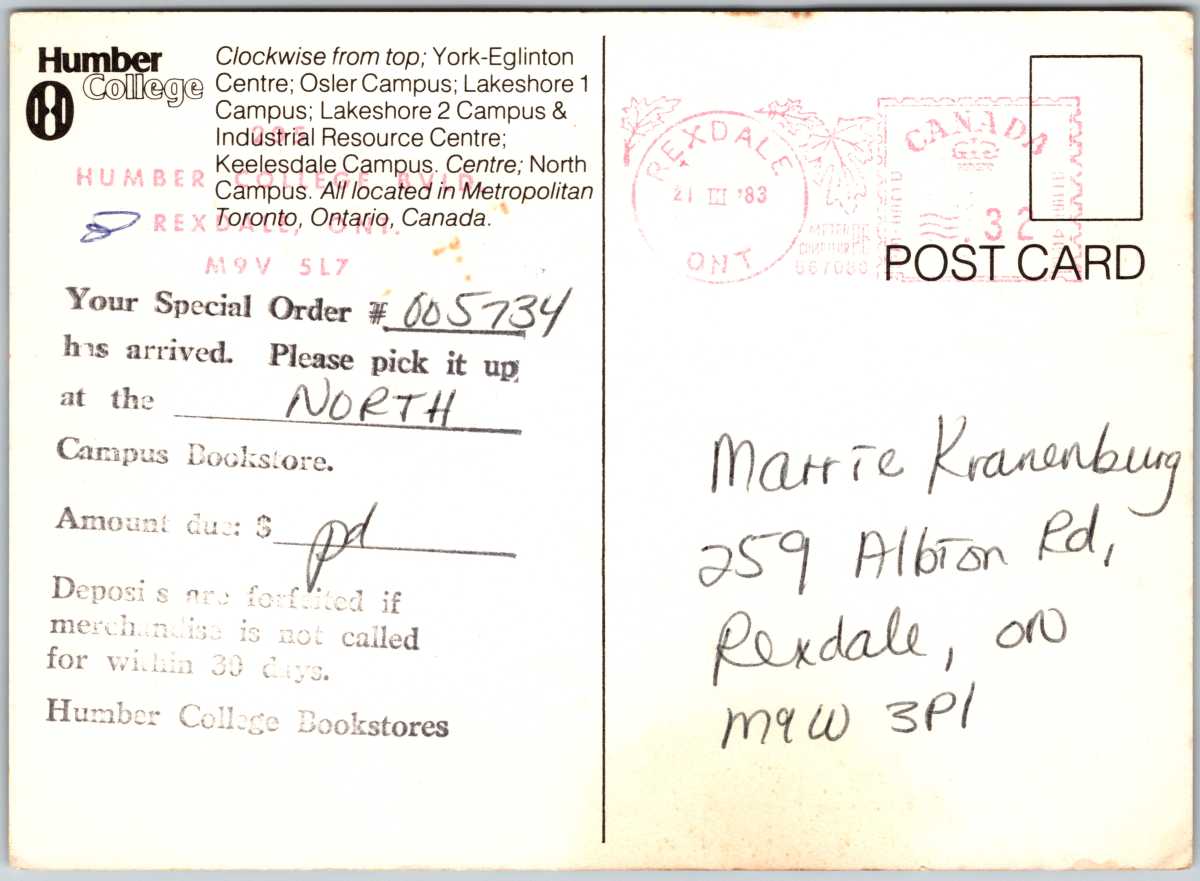 Humber
College
Clockwise from top; York-Eglinton
Centre; Osler Campus; Lakeshore 1
Campus; Lakeshore 2 Campus &
Industrial Resource Centre;
Keelesdale Campus. Centre; North
Campus. All located in Metropolitan
Toronto, Ontario, Canada.
205
HUMBER COLLEGE BVLD.
REXDALE, ONT.
M9V 5L7
Your Special Order # 005734
has arrived. Please pick it up
at the NORTH
Campus Bookstore.
Amount due: $ pd
Deposits are forfeited if
merchandise is not called
for within 30 days.
Humber College Bookstores
REXDALE
21 III '83
ONT
CANADA
.32
POST CARD
Marrie Kranenburg
259 Albion Rd,
Rexdale, ON
M9W 3P1